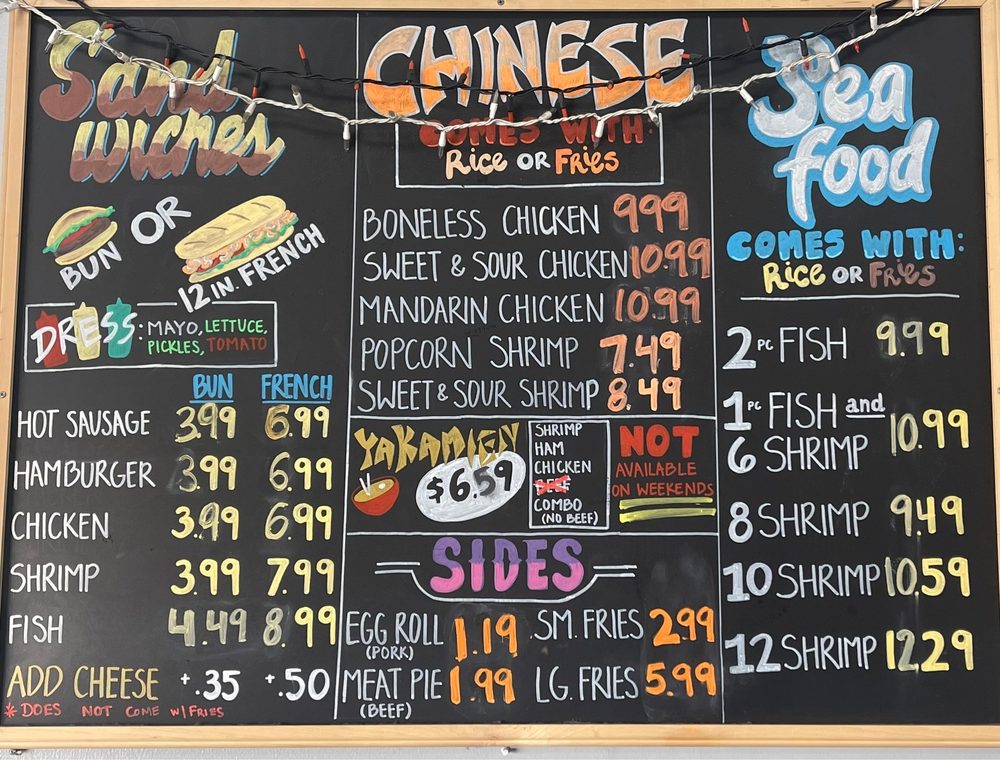 Sand
wiches
BUN OR 12 IN. FRENCH
DRESS: MAYO, LETTUCE,
PICKLES, TOMATO
BUN FRENCH
HOT SAUSAGE 3.99 6.99
HAMBURGER 3.99 6.99
CHICKEN 3.99 6.99
SHRIMP 3.99 7.99
FISH 4.49 8.99
ADD CHEESE +.35 +.50
* DOES NOT COME W/ FRIES
CHINESE
COMES WITH:
Rice OR Fries
BONELESS CHICKEN 999
SWEET & SOUR CHICKEN 10.99
MANDARIN CHICKEN 10.99
POPCORN SHRIMP 7.49
SWEET & SOUR SHRIMP 8.49
YAKAMIEN
$6.59
SHRIMP
HAM
CHICKEN
BEEF
COMBO
(NO BEEF)
NOT
AVAILABLE
ON WEEKENDS
SIDES
EGG ROLL 1.19 SM. FRIES 2.99
(PORK)
MEAT PIE 1.99 LG. FRIES 5.99
(BEEF)
Sea
food
COMES WITH:
Rice OR Fries
2 PC FISH 9.99
1 PC FISH and
6 SHRIMP 10.99
8 SHRIMP 9.49
10 SHRIMP 10.59
12 SHRIMP 12.29